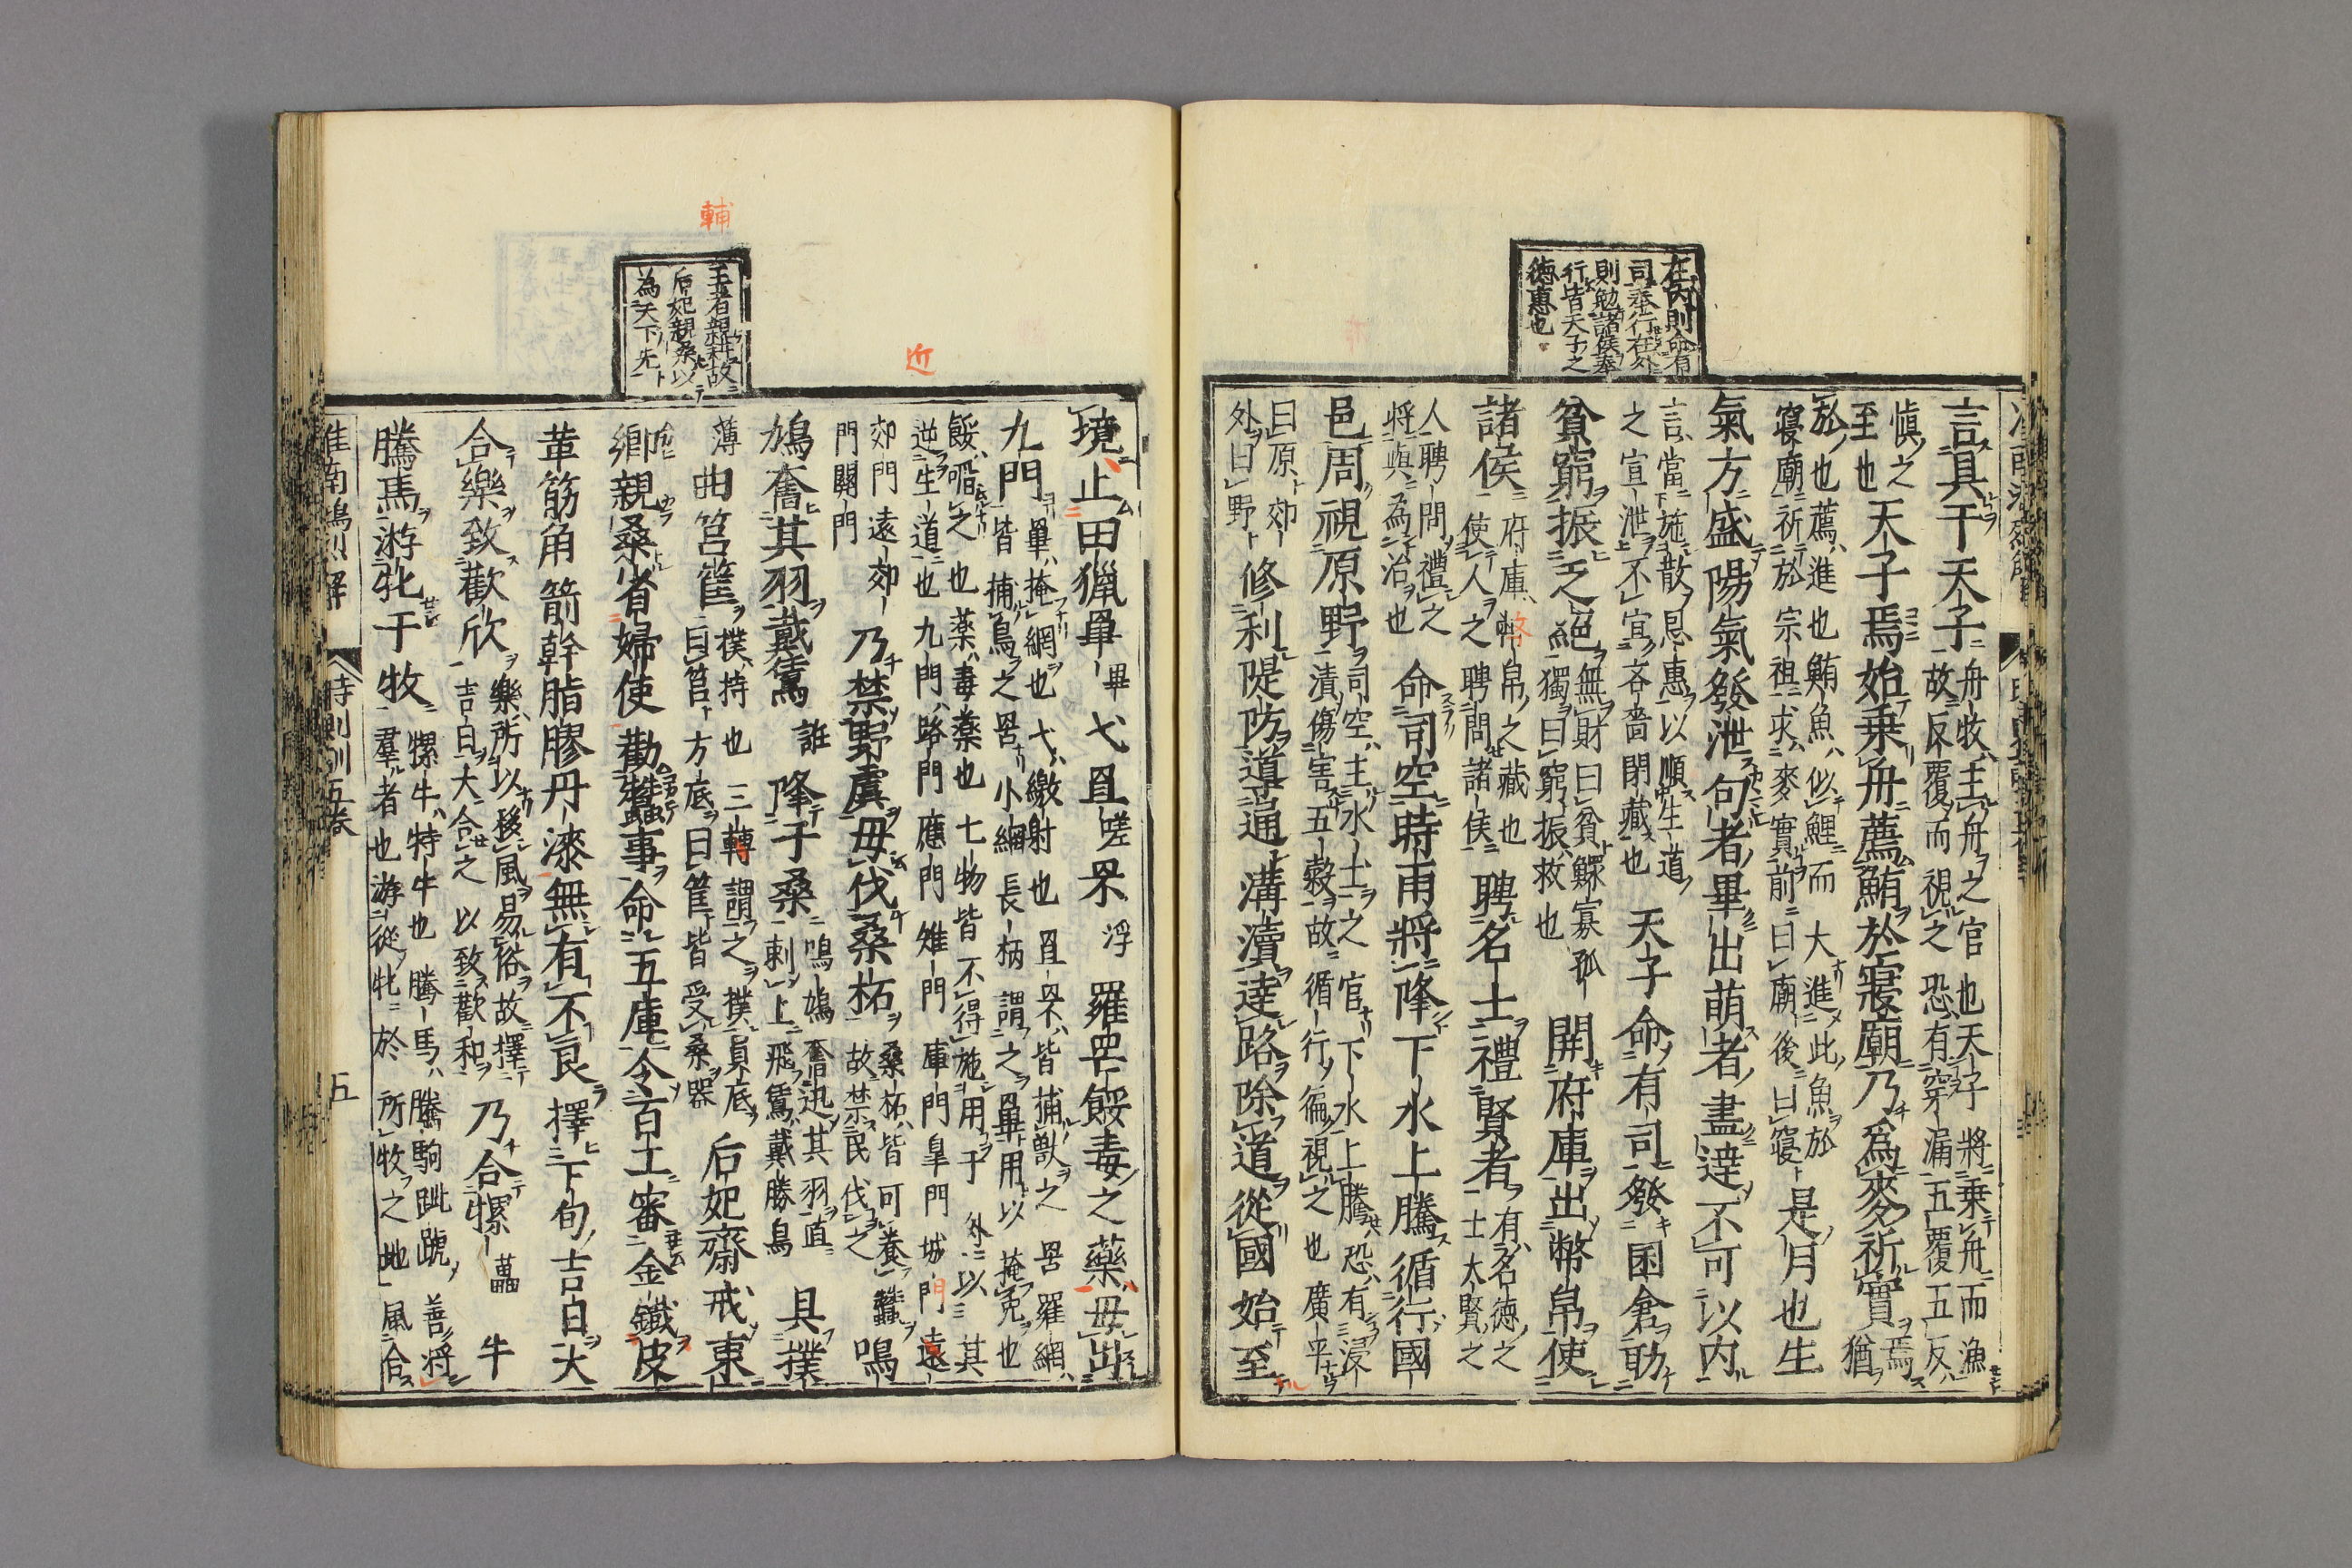 在内則命有
司奉行在外
則勉諸侯奉
行皆天子之
德惠也
言具于天子舟牧主舟之官也天子將乘舟而漁
故反覆而視之恐有穿漏五覆五反
慎之
至也天子焉始乘舟薦鮪於寢廟乃爲麥祈實焉
猶
於也薦進也鮪魚似鯉而大進此魚於
寢廟祈於宗祖求麥實前曰廟後曰寢是月也生
氣方盛陽氣發泄句者畢出萌者盡達不可以内
言當施散恩惠以順生道
之宣泄不宜吝嗇閉藏也天子命有司發囷倉助
貧窮振乏絕無財曰貧鰥寡孤
獨曰窮振救也開府庫出幣帛使
諸侯府庫幣帛之藏也
使人之聘問諸侯聘名士禮賢者有名德之
士大賢之
人聘問禮之
將與爲治也命司空時雨將降下水上騰循行國
邑周視原野司空主水土之官下水上騰恐有浸
漬傷害五穀故循行徧視之也廣平
曰原郊
外曰野修利隄防導通溝瀆達路除道從國始至
王者親耕故
后妃親桑以
為天下先
輔
近
境止田獵畢畢弋罝嗟罘浮羅罔餧毒之藥毋出
九門畢掩網也弋繳射也罝罘皆捕獸之罟羅網
皆捕鳥之罟小網長柄謂之畢用以掩兎也
餧啗之也藥毒藥也七物皆不得施用于外以其
逆生道也九門路門應門雉門庫門皐門城門遠
郊門遠郊
門關門乃禁野虞毋伐桑柘桑柘皆可養蠶
故禁民伐之鳴
鳩奮其羽戴鵀誰降于桑鳴鳩奮迅其羽直
刺上飛鵀戴勝鳥具撲
薄曲筥筐撲持也三轉謂之撲員底
曰筥方底曰筐皆受桑器后妃齋戒東
鄉親桑省婦使勸蠶事命五庫令百工審金鐵皮
革筋角箭幹脂膠丹漆無有不良擇下旬吉日大
合樂致歡欣樂所以移風易俗故擇
吉日大合之以致歡和乃合㹎牛
騰馬游牝于牧㹎牛特牛也騰馬騰駒跳踶善將
羣者也游從牝於所牧之地風合
淮南鴻烈解
時則訓五卷
五